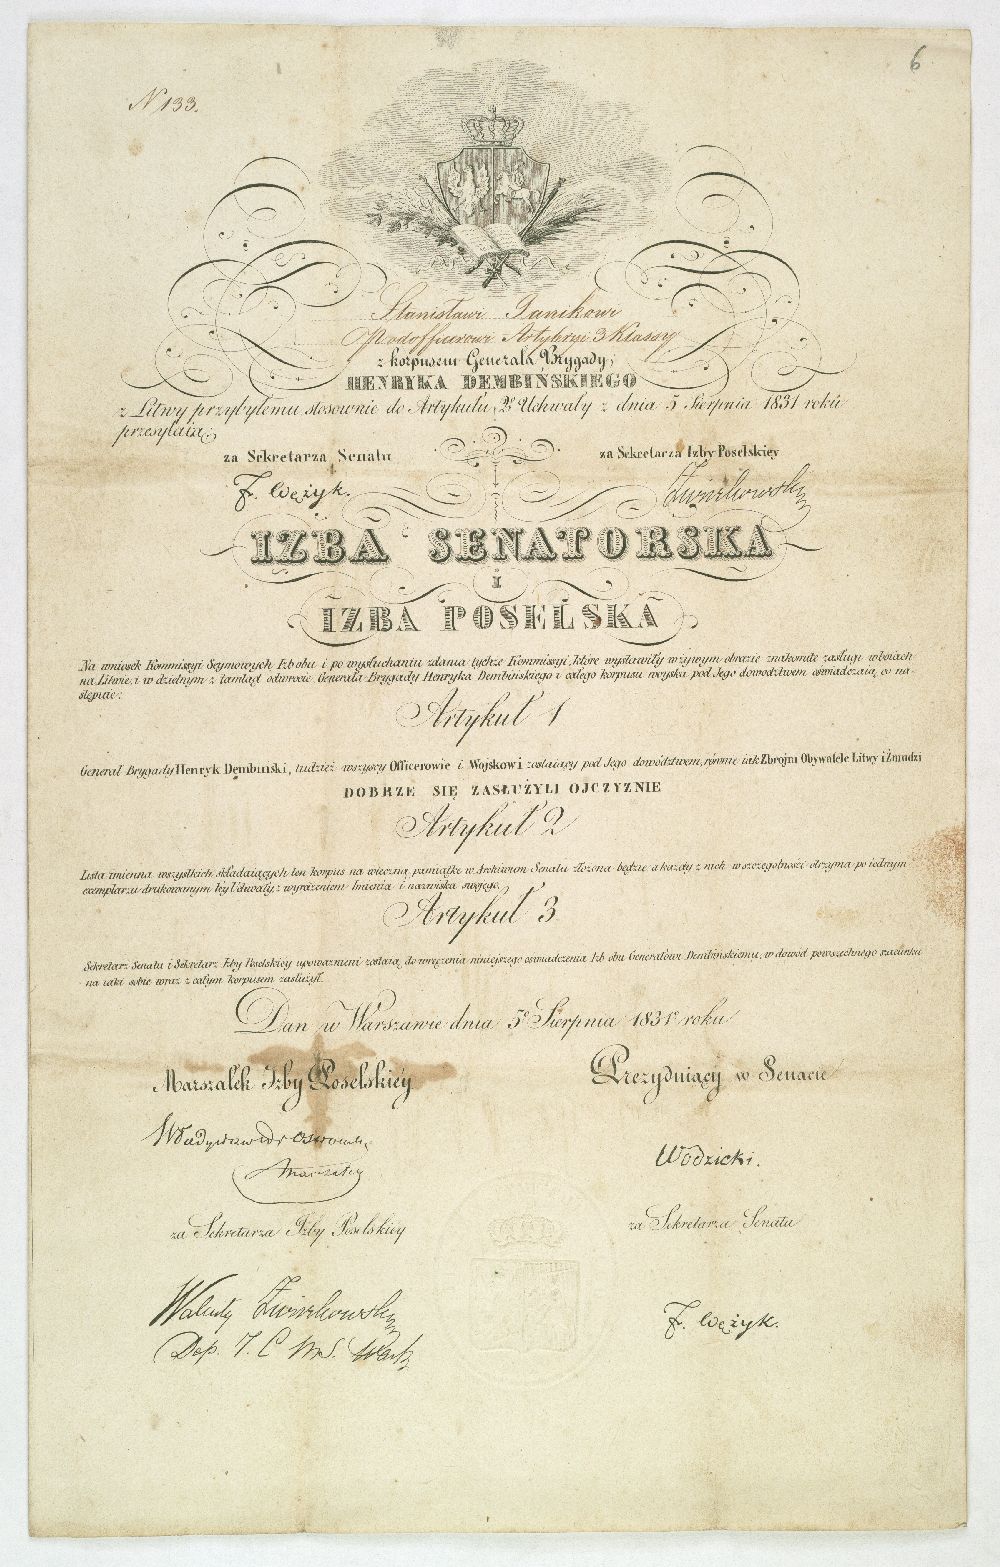 6
N 133.
Stanisławi Janikowi
Podofficerowi Artyleryi 3 Klassy
z korpusem Generała Brygady,
HENRYKA DEMBIŃSKIEGO
z Litwy przybyłemu stosownie do Artykułu, 2º Uchwały z dnia 5 Sierpnia 1831 roku
przesyłaią:
za Sekretarza Senatu
za Sekretarza Izby Poselskiey
F. Wężyk.
Zwierkowski
IZBA SENATORSKA
I
IZBA POSELSKA
Na wniosek Kommissyi Seymowych Izb obu i po wysłuchaniu zdania tychże Kommissyi, które wystawiły w żywym obrazie znakomite zasługi w boiach
na Litwie, i w dzielnym z tamtąd odwrocie Generała Brygady Henryka Dembińskiego i całego korpusu woyska pod Jego dowództwem oświadczaią, co na-
stępuie:
Artykuł 1
Generał Brygady Henryk Dembiński, tudzież wszyscy Officerowie i Wojskowi zostaiący pod Jego dowództwem, równie iak Zbrojni Obywatele Litwy i Żmudzi
DOBRZE SIĘ ZASŁUŻYLI OJCZYZNIE
Artykuł 2
Lista imienna wszystkich składaiących ten korpus na wieczną pamiątkę w Archiwum Senatu złożona będzie a każdy z nich w szczególności otrzyma po iednym
exemplarzu drukowanym tey Uchwały z wyrażeniem Imienia i nazwiska swojego.
Artykuł 3
Sekretarz Senatu i Sekretarz Izby Poselskiey upoważnieni zostaią do wręczenia niniejszego oświadczenia Izb obu Generałowi Dembińskiemu, w dowód powszechnego szacunku
na iaki sobie wraz z całym korpusem zasłużył.
Dan w Warszawie dnia 5º Sierpnia 1831º roku
Marszałek Izby Poselskiéy
Prezyduiący w Senacie
Władysław Hr Ostrowski
Marszałek
Wodzicki.
za Sekretarza Izby Poselskiey
za Sekretarza Senatu
Walenty Zwierkowski
Dep. 7. C M. S. Warsz
F. Wężyk.